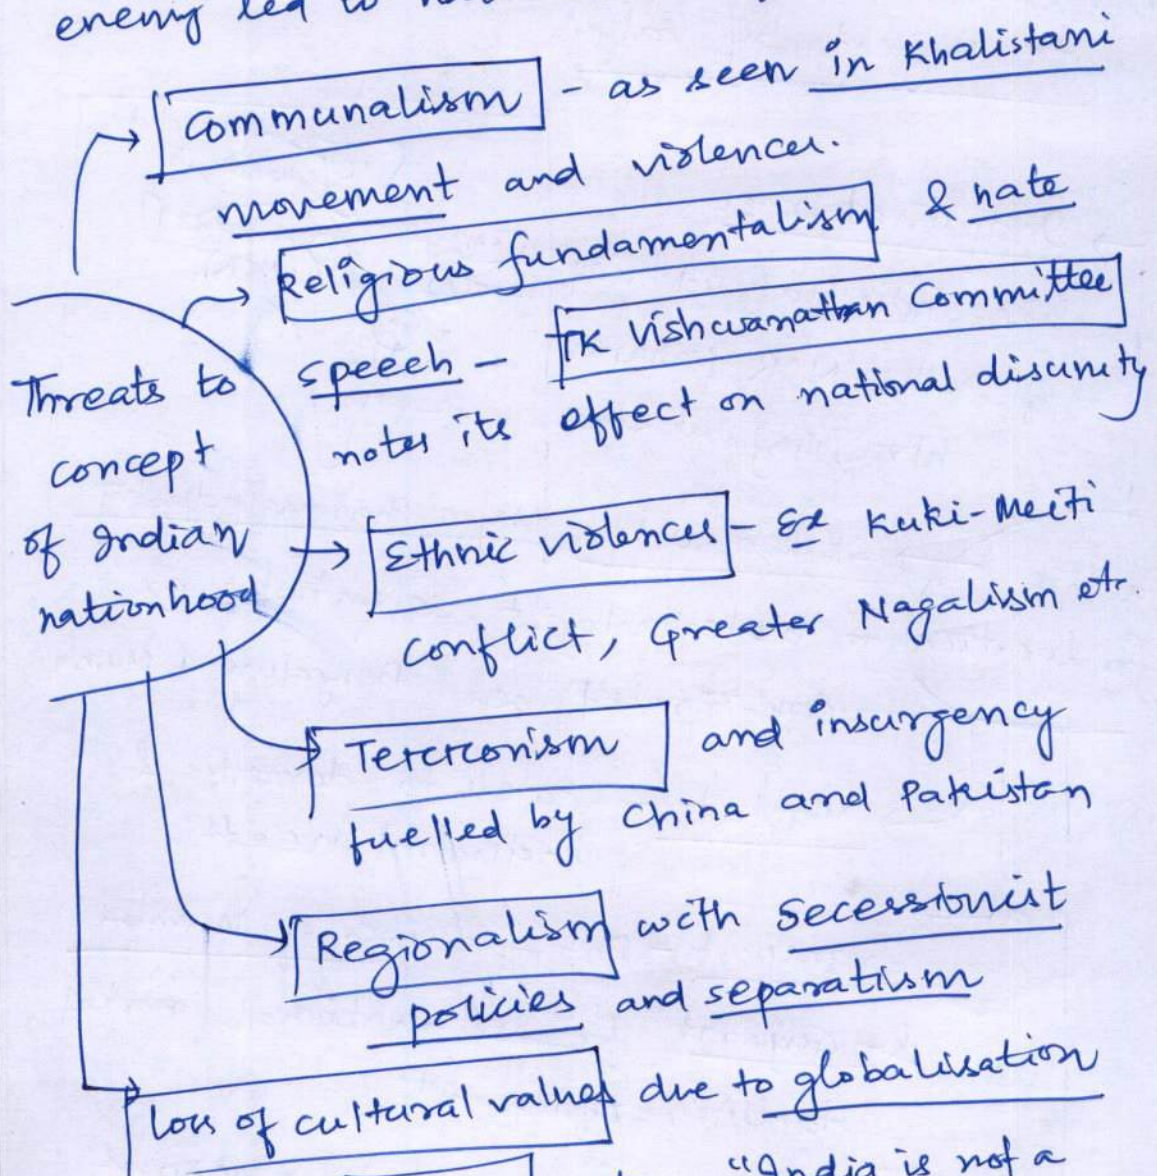 enemy led to
Communalism - as seen in Khalistani
movement and violences.
Religious fundamentalism & hate
speech - TK Vishwanathan Committee
notes its effect on national disunity
Threats to
concept
of Indian
nationhood
Ethnic violences - Ex Kuki-Meiti
conflict, Greater Nagalism etc.
Terrorism and insurgency
fuelled by China and Pakistan
Regionalism with secessionist
policies and separatism
loss of cultural values due to globalisation
"India is not a